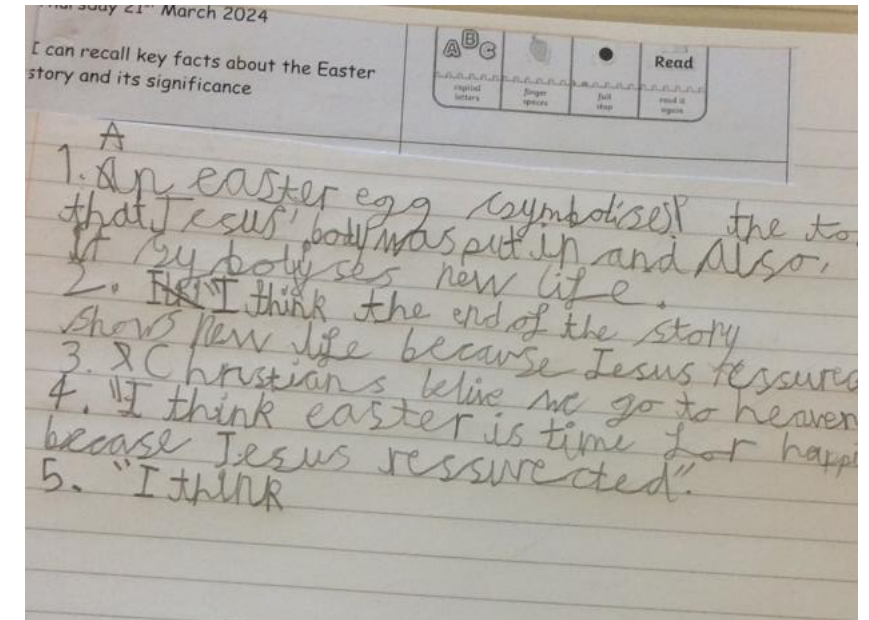 Thursday 21st March 2024
I can recall key facts about the Easter
story and its significance
A B C
Read
capital
letters
finger
spaces
full
stop
read it
again
A
1. An easter egg symbolises the to
that Jesus' body was put in and Also,
It sybolyses new life.
2. "I think the end of the story
shows new life because Jesus ressurec
3. Christians belive we go to heaven
4. "I think easter is time for happi
becase Jesus ressurected".
5. "I think